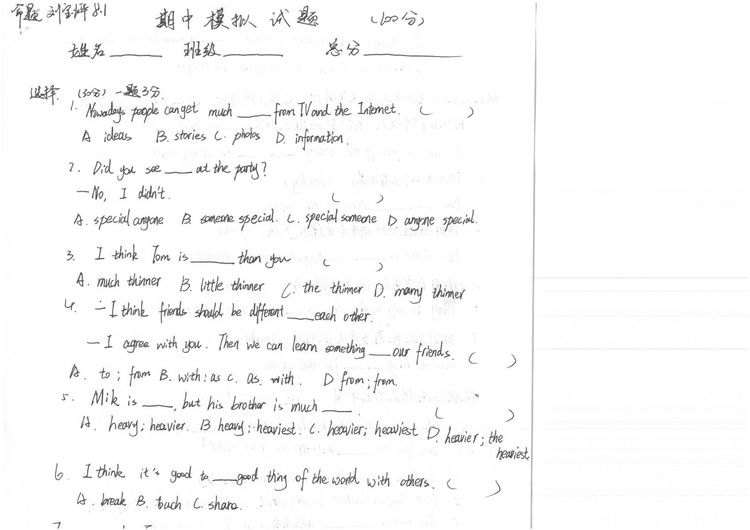 命题 刘宝评 8.1
期中模拟试题 (100分)
姓名______ 班级______ 总分________
选择. (30分) 一题3分.
1. Nowadays people can get much ____ from TV and the Internet. ( )
A ideas B. stories C. photos D. information.
2. Did you see ____ at the party?
—No, I didn't. ( )
A. special anyone B. someone special. C. special someone D anyone special.
3. I think Tom is ______ than you ( )
A. much thinner B. little thinner C. the thinner D. many thinner
4. —I think friends should be different ____ each other.
—I agree with you. Then we can learn something ___ our friends. ( )
A. to; from B. with; as C. as. with. D from; from.
5. Mik is ____, but his brother is much ____. ( )
A. heavy; heavier. B heavy; heaviest. C. heavier; heaviest D. heavier; the
heaviest.
6. I think it's good to ____ good thing of the world with others. ( )
A. break B. touch C. share.
7